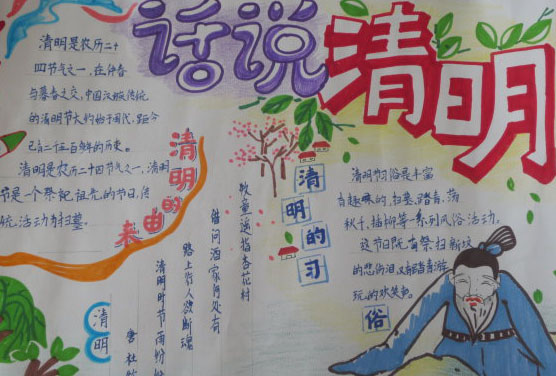 话说清明
清明是农历二十
四节气之一，在仲春
与暮春之交，中国汉族传统
的清明节大约始于周代，距今
已有二千五百多年的历史。
清明是农历二十四节气之一，清明
节是一个祭祀祖先的节日，传
统活动为扫墓。
清明的由来
清明的习俗
清明节习俗是丰富
有趣味的，扫墓、踏青、荡
秋千、插柳等一系列风俗活动。
这节日既有祭扫新坟
的悲伤泪，又有踏青游
玩的欢笑声。
清明
唐 杜牧
清明时节雨纷纷
路上行人欲断魂
借问酒家何处有
牧童遥指杏花村